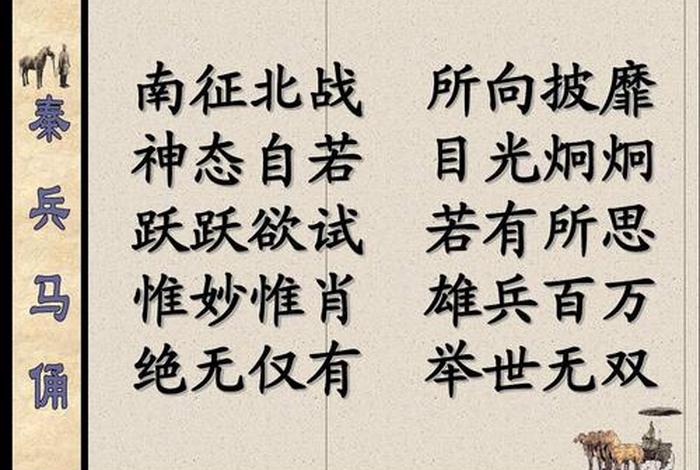 秦兵马俑
南征北战 所向披靡
神态自若 目光炯炯
跃跃欲试 若有所思
惟妙惟肖 雄兵百万
绝无仅有 举世无双